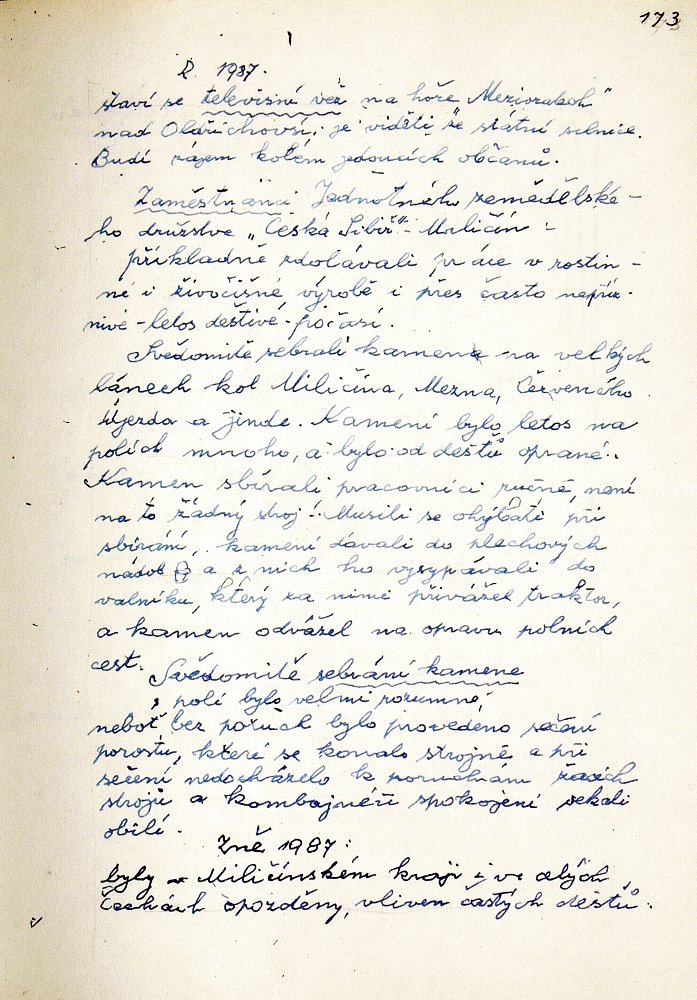 173
R. 1987.
staví se televisní věž na hoře „Meziorakoh"
nad Oldřichovsí, je viděti se státní silnice.
Budí zájem kolem jedoucích občanů.
Zaměstnanci Jednotného zemědělské-
ho družstva „Česká Sibiř" - Miličín -
příkladně zdolávali práce v rostin-
né i živočišné výrobě i přes často nepříz-
nivé - letos deštivé - počasí.
Svědomitě sebrali kamena na velkých
lánech kol Miličína, Mezna, Červeného
Újezda a jinde. Kamení bylo letos na
polích mnoho, a bylo od deštů oprané.
Kamen sbírali pracovníci ručně, není
na to žádný stroj! Musili se ohýbati při
sbírání, kamení dávali do plechových
nádob a z nich ho vysypávali do
valníku, který za nimi přivážel traktor,
a kamen odvážel na opravu polních
cest. Svědomitě sebrání kamene
s polí bylo velmi rozumné,
neboť bez poruch bylo provedeno sečení
porostu, které se konalo strojně a při
sečení nedocházelo k poruchám žacích
strojů a kombajnéři spokojeni sekali
obilí.
Žně 1987:
byly v Miličínském kraji i ve celých
Čechách opozděny, vlivem častých deštů.